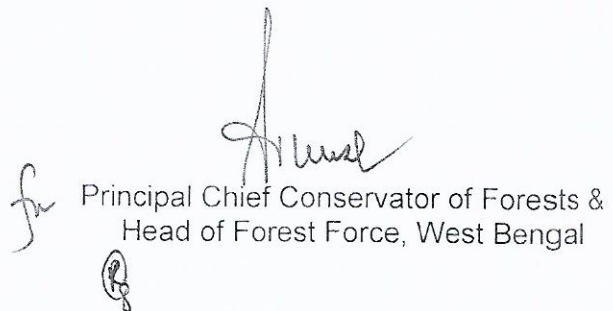 for Principal Chief Conservator of Forests &
Head of Forest Force, West Bengal